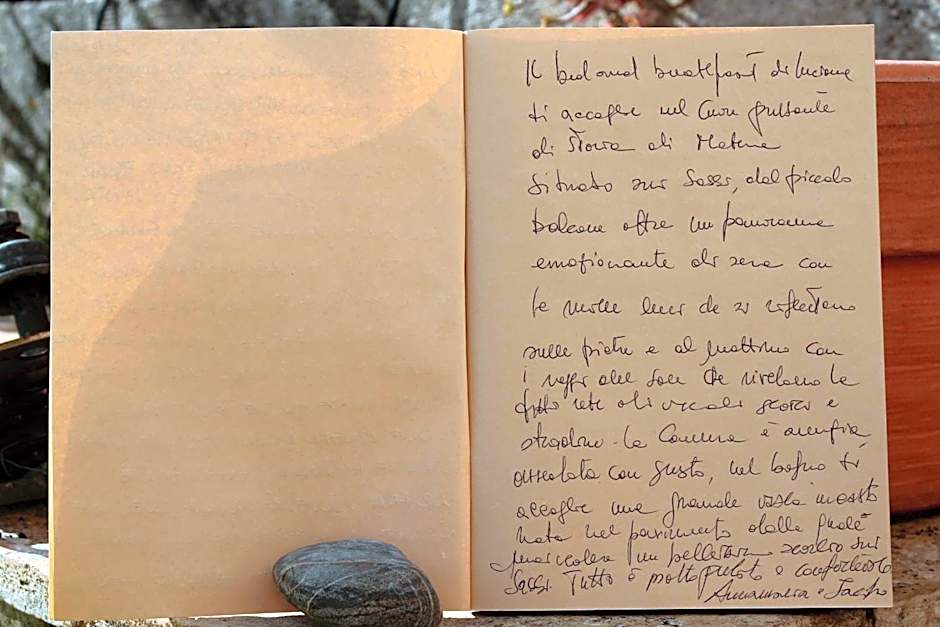 Il bed and breakfast di Luciana
ti accoglie nel cuore pulsante
di Storia di Matera
Situato sui Sassi, dal piccolo
balcone offre un panorama
emozionante di sera con
le mille luci che si riflettono
sulle pietre e al mattino con
i raggi del Sole che rivelano la
fitta rete di vicoli scorci e
stradine. La Camera è ampia,
arredata con gusto, nel bagno ti
accoglie una grande vasca incasto
nata nel pavimento dalla quale
un bellissimo scorcio sui
Sassi. Tutto è molto pulito e confortevole
Annamaria e